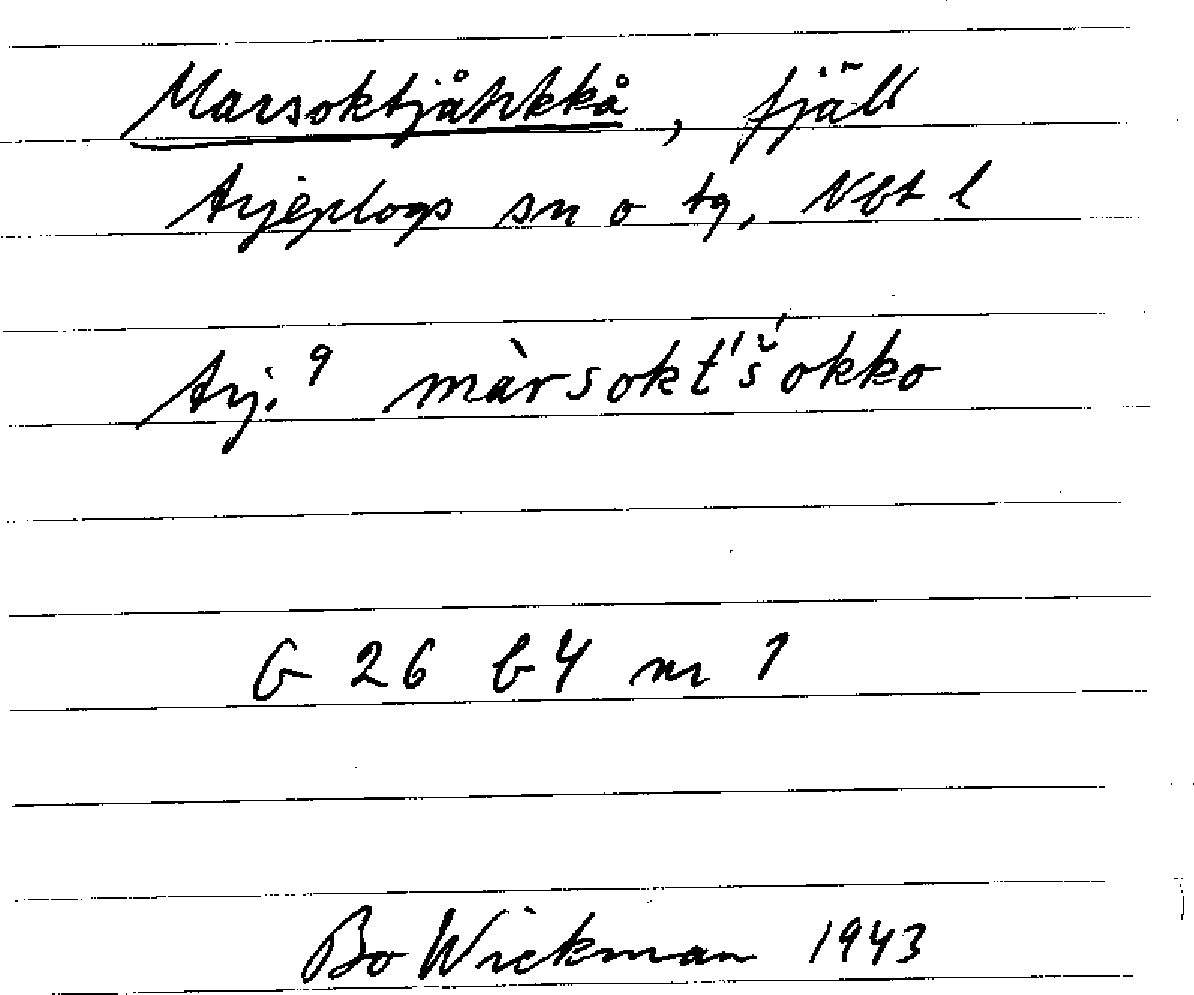 Marsoktjåhkkå, fjäll
Arjeplogs sn o tg, Nbt l
Arj. 9 màrsokt'š́okko
G 26 b 4 nr 1
Bo Wickman 1943